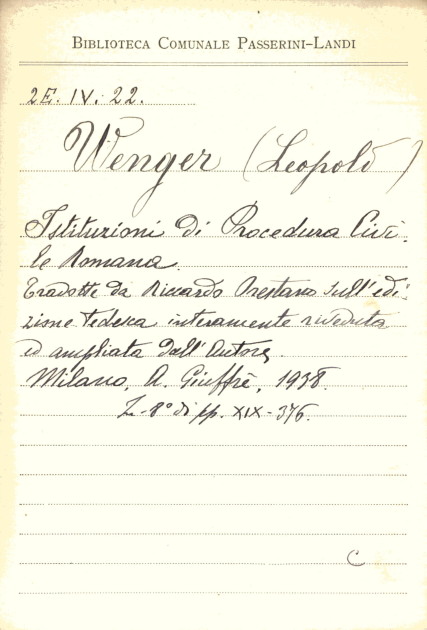 BIBLIOTECA COMUNALE PASSERINI-LANDI
2E. IV. 22.
Wenger (Leopold)
Istituzioni di Procedura Civi-
le Romana.
Tradotte da Riccardo Orestano sull'edi-
zione tedesca interamente riveduta
ed ampliata dall'Autore,
Milano, A. Giuffrè, 1938.
8° di pp. XIX-376.
C